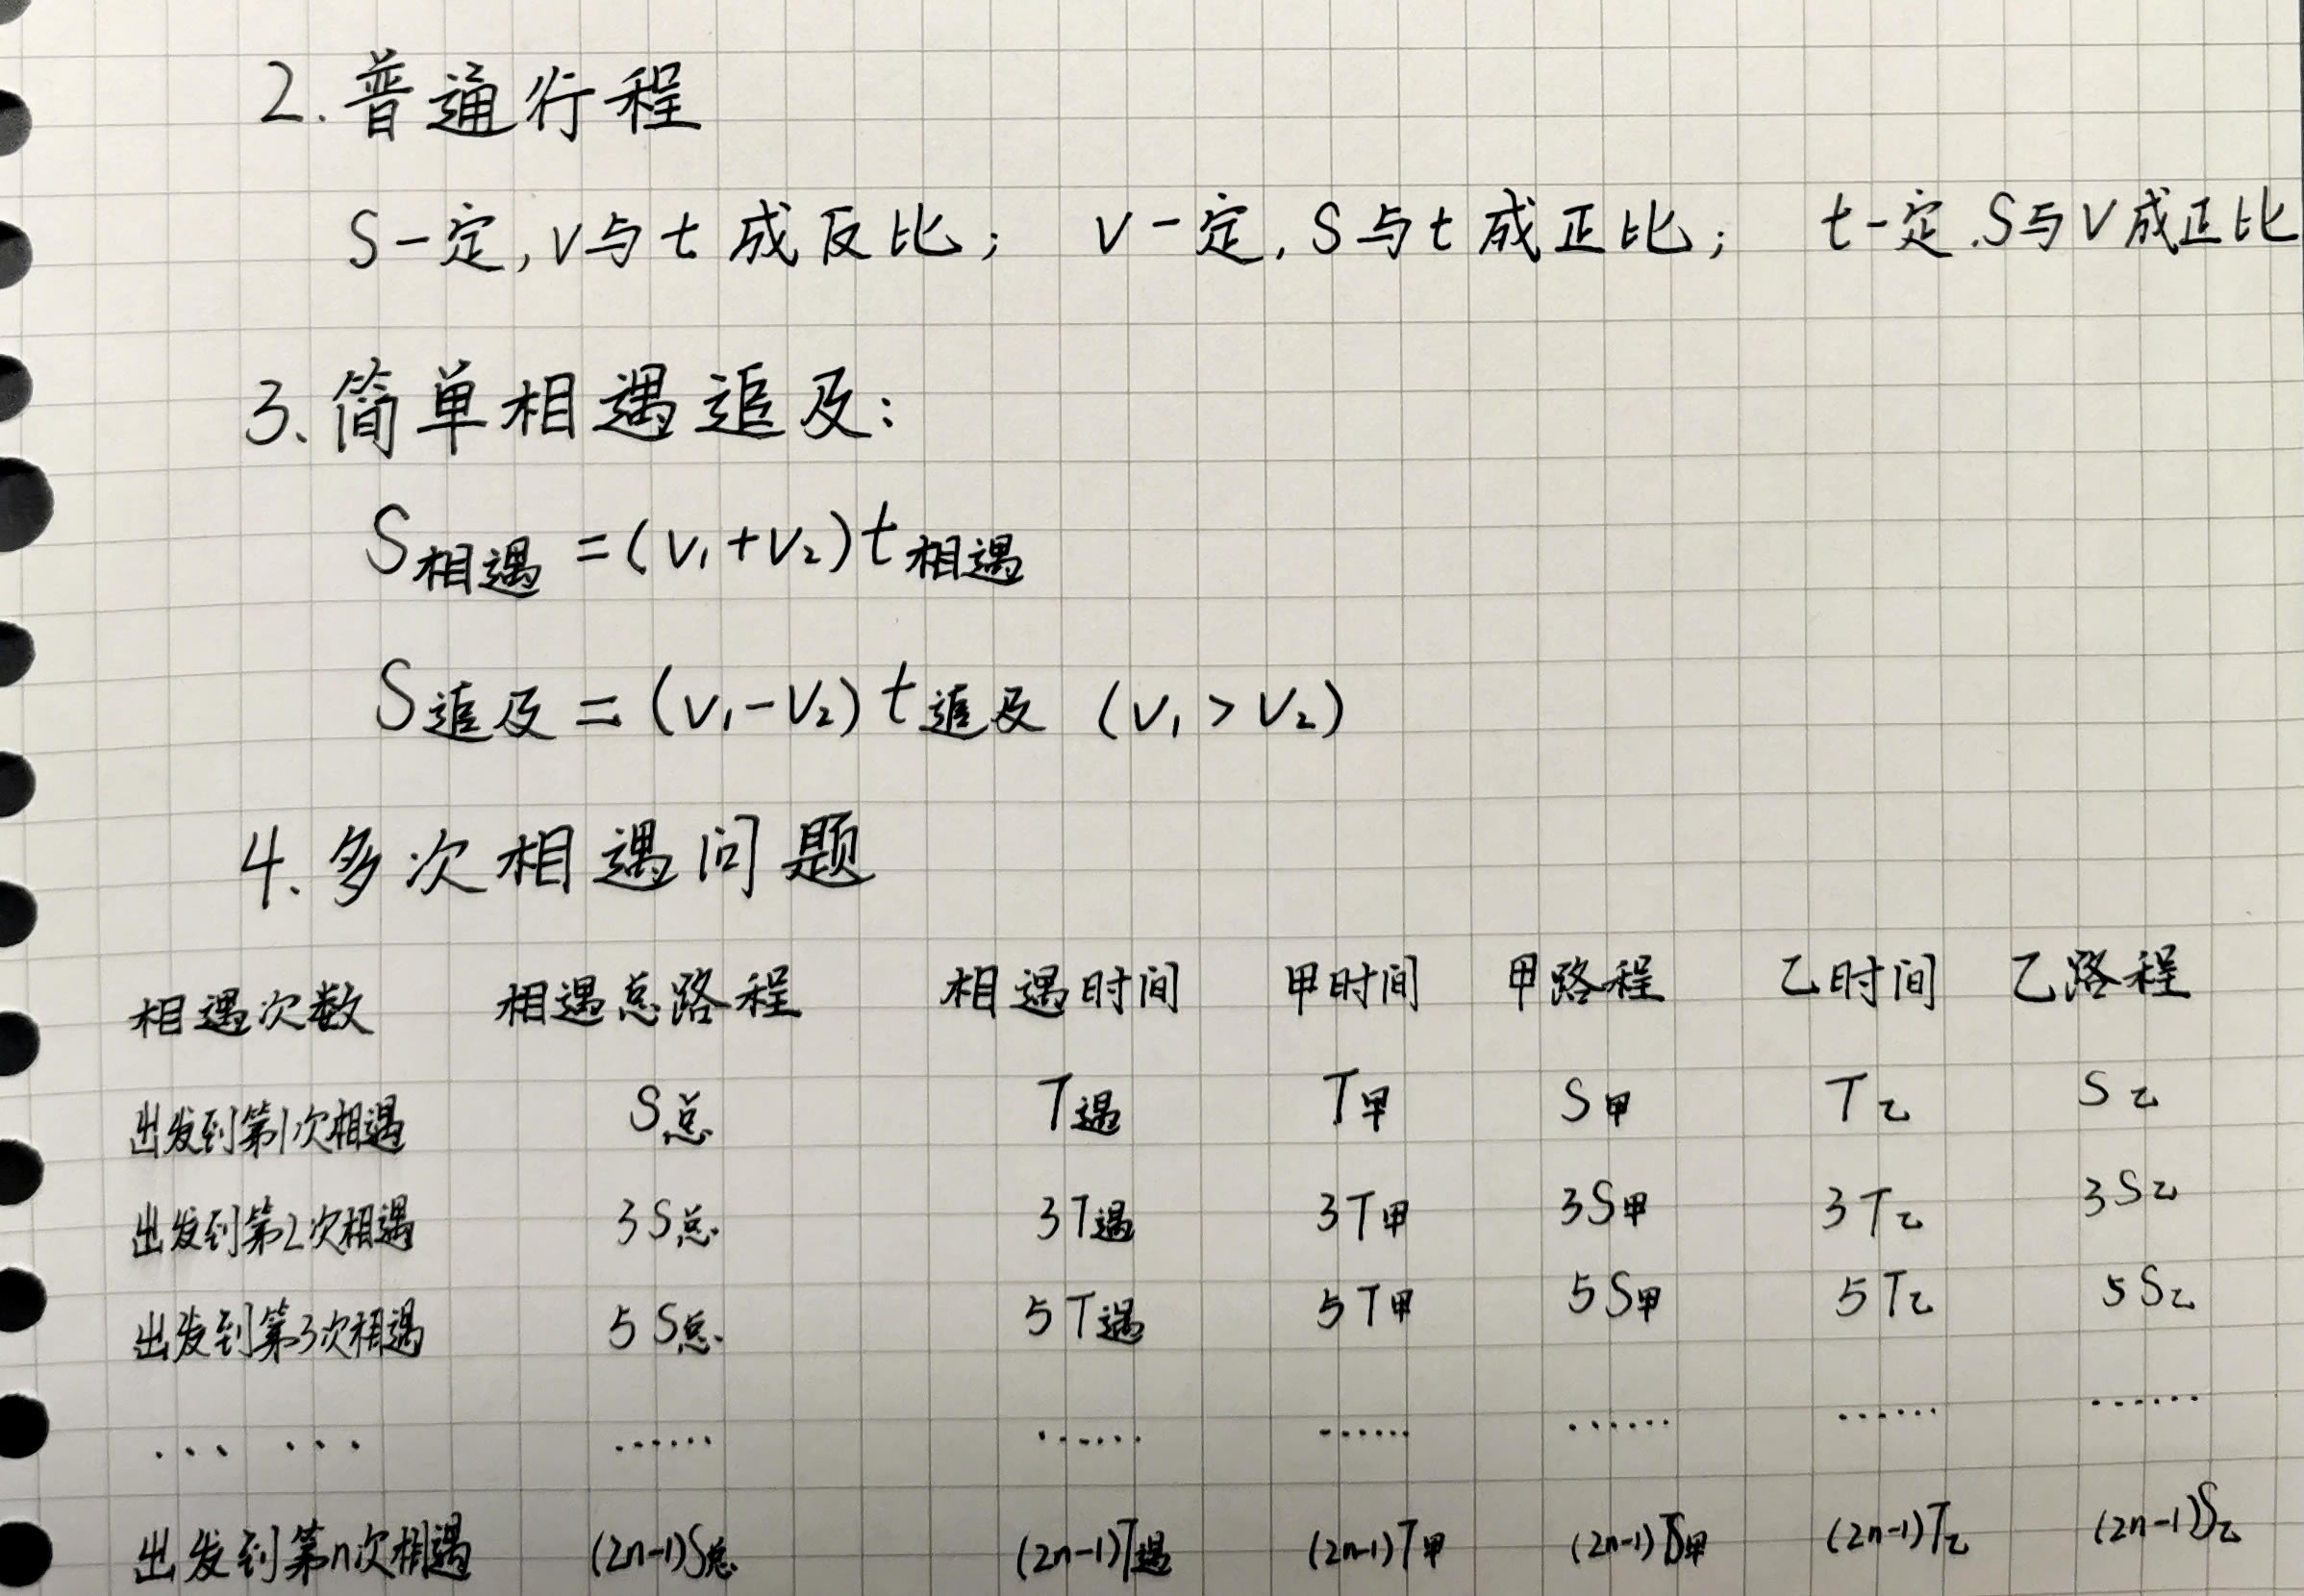 2.普通行程
S一定,v与t成反比; v一定,S与t成正比; t一定.S与v成正比
3、简单相遇追及:
S相遇=(v₁+v₂)t相遇
S追及=(v₁-v₂)t追及 (v₁>v₂)
4.多次相遇问题
相遇次数 相遇总路程 相遇时间 甲时间 甲路程 乙时间 乙路程
出发到第1次相遇 S总 T遇 T甲 S甲 T乙 S乙
出发到第2次相遇 3S总 3T遇 3T甲 3S甲 3T乙 3S乙
出发到第3次相遇 5S总 5T遇 5T甲 5S甲 5T乙 5S乙
... ... ...... ...... ...... ...... ...... ......
出发到第n次相遇 (2n-1)S总 (2n-1)T遇 (2n-1)T甲 (2n-1)S甲 (2n-1)T乙 (2n-1)S乙